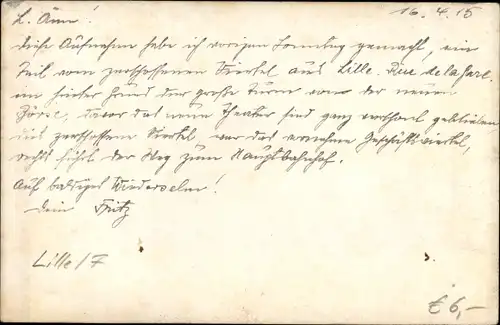 L. Änn! 16.4.15
diese Aufnahmen habe ich vorigen Sonntag gemacht, ein
Teil vom zerschossenen Viertel aus Lille. Rue de la Gare.
im Hintergrund der große Turm von der neuen
Börse, davor das neue Theater sind ganz verschont geblieben
das zerschossene Viertel war das vornehme Geschäftsviertel,
rechts führt der Weg zum Hauptbahnhof.
Auf baldiges Wiedersehn!
Dein Fritz
Lille / 7
€ 6,-